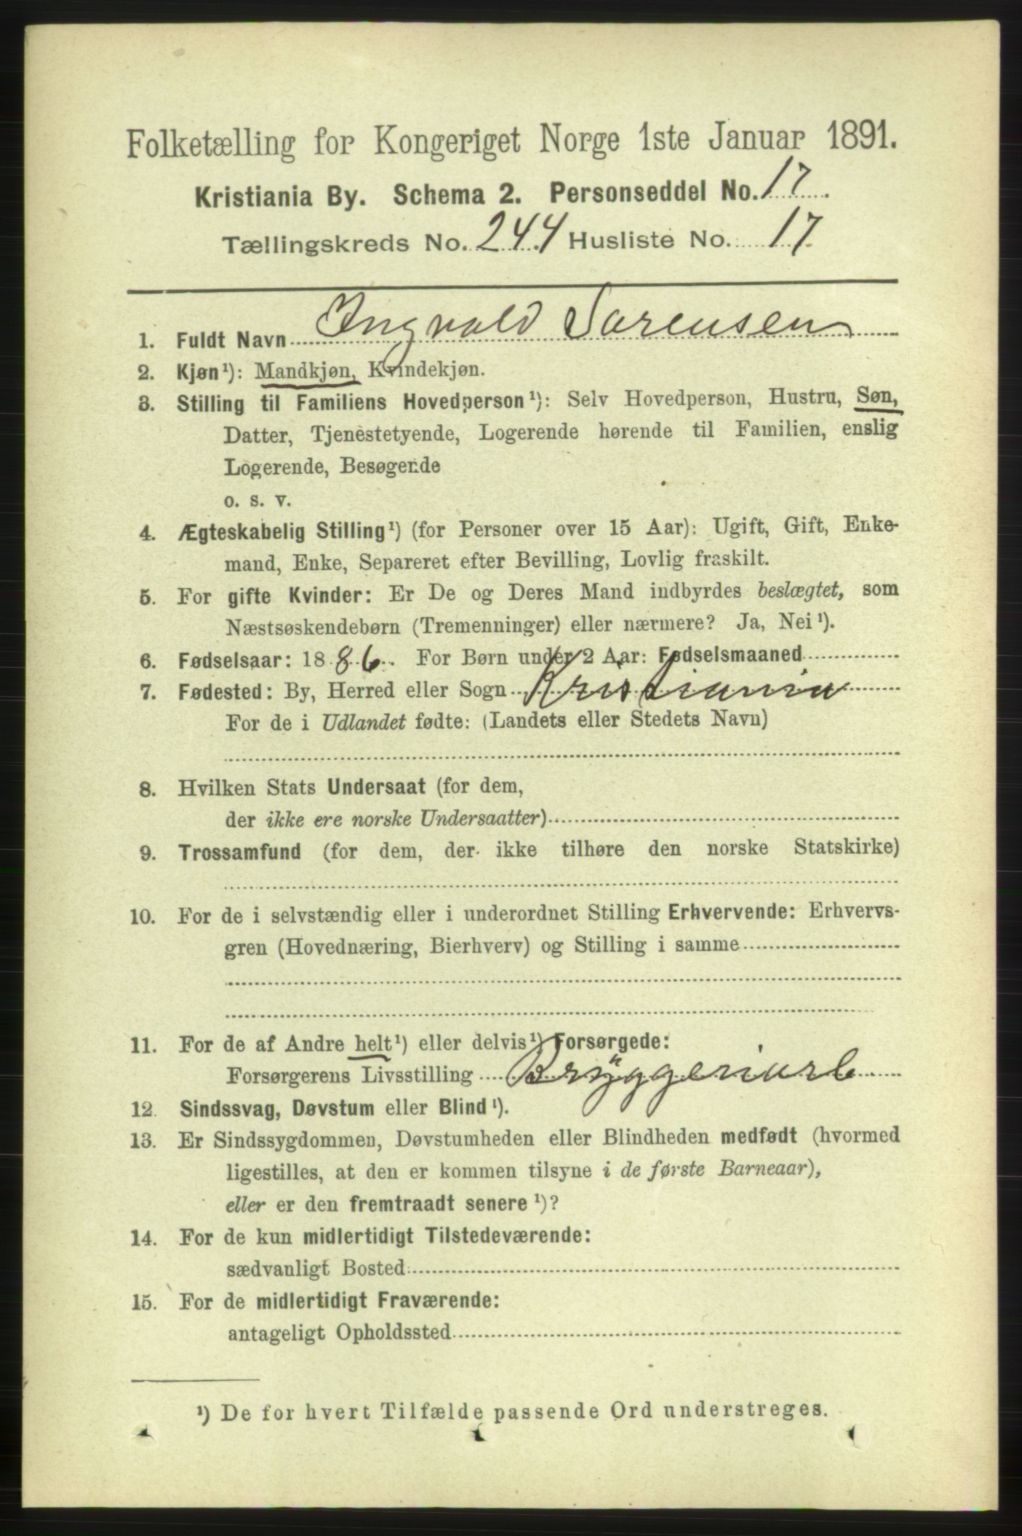 Folketælling for Kongeriget Norge 1ste Januar 1891.
Kristiania By. Schema 2. Personseddel No. 17
Tællingskreds No. 244 Husliste No. 17
1. Fuldt Navn Ingvald Sørensen
2. Kjøn¹): Mandkjøn, Kvindekjøn.
3. Stilling til Familiens Hovedperson¹): Selv Hovedperson, Hustru, Søn,
Datter, Tjenestetyende, Logerende hørende til Familien, enslig
Logerende, Besøgende
o. s. v.
4. Ægteskabelig Stilling¹) (for Personer over 15 Aar): Ugift, Gift, Enke-
mand, Enke, Separeret efter Bevilling, Lovlig fraskilt.
5. For gifte Kvinder: Er De og Deres Mand indbyrdes beslægtet, som
Næstsøskendebørn (Tremenninger) eller nærmere? Ja, Nei¹).
6. Fødselsaar: 1886. For Børn under 2 Aar: Fødselsmaaned
7. Fødested: By, Herred eller Sogn Kristiania
For de i Udlandet fødte: (Landets eller Stedets Navn)
8. Hvilken Stats Undersaat (for dem,
der ikke ere norske Undersaatter)
9. Trossamfund (for dem, der ikke tilhøre den norske Statskirke)
10. For de i selvstændig eller i underordnet Stilling Erhvervende: Erhvervs-
gren (Hovednæring, Bierhverv) og Stilling i samme
11. For de af Andre helt¹) eller delvis¹) Forsørgede:
Forsørgerens Livsstilling Bryggeriarb
12. Sindssvag, Døvstum eller Blind¹).
13. Er Sindssygdommen, Døvstumheden eller Blindheden medfødt (hvormed
ligestilles, at den er kommen tilsyne i de første Barneaar),
eller er den fremtraadt senere¹)?
14. For de kun midlertidigt Tilstedeværende:
sædvanligt Bosted
15. For de midlertidigt Fraværende:
antageligt Opholdssted
¹) De for hvert Tilfælde passende Ord understreges.